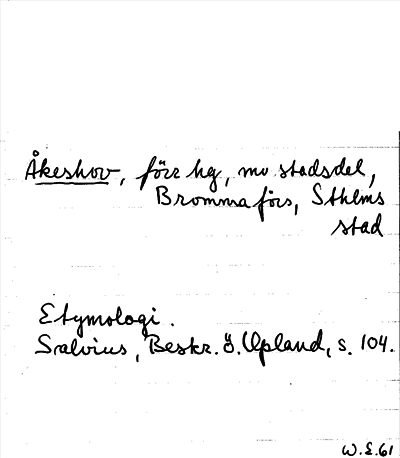 Åkeshov, förr hg, nu stadsdel,
Bromma förs, Sthlms
stad
Etymologi.
Salvius, Beskr. ö. Upland, s. 104.
W.E.61